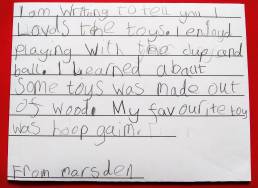 I am writing to tell you I
Lovds the toys. I enjoyd
playing with the cup and
ball. I Learned about
Some toys was made out
of wood. My favourite toy
was hoop gaim.
From marsden